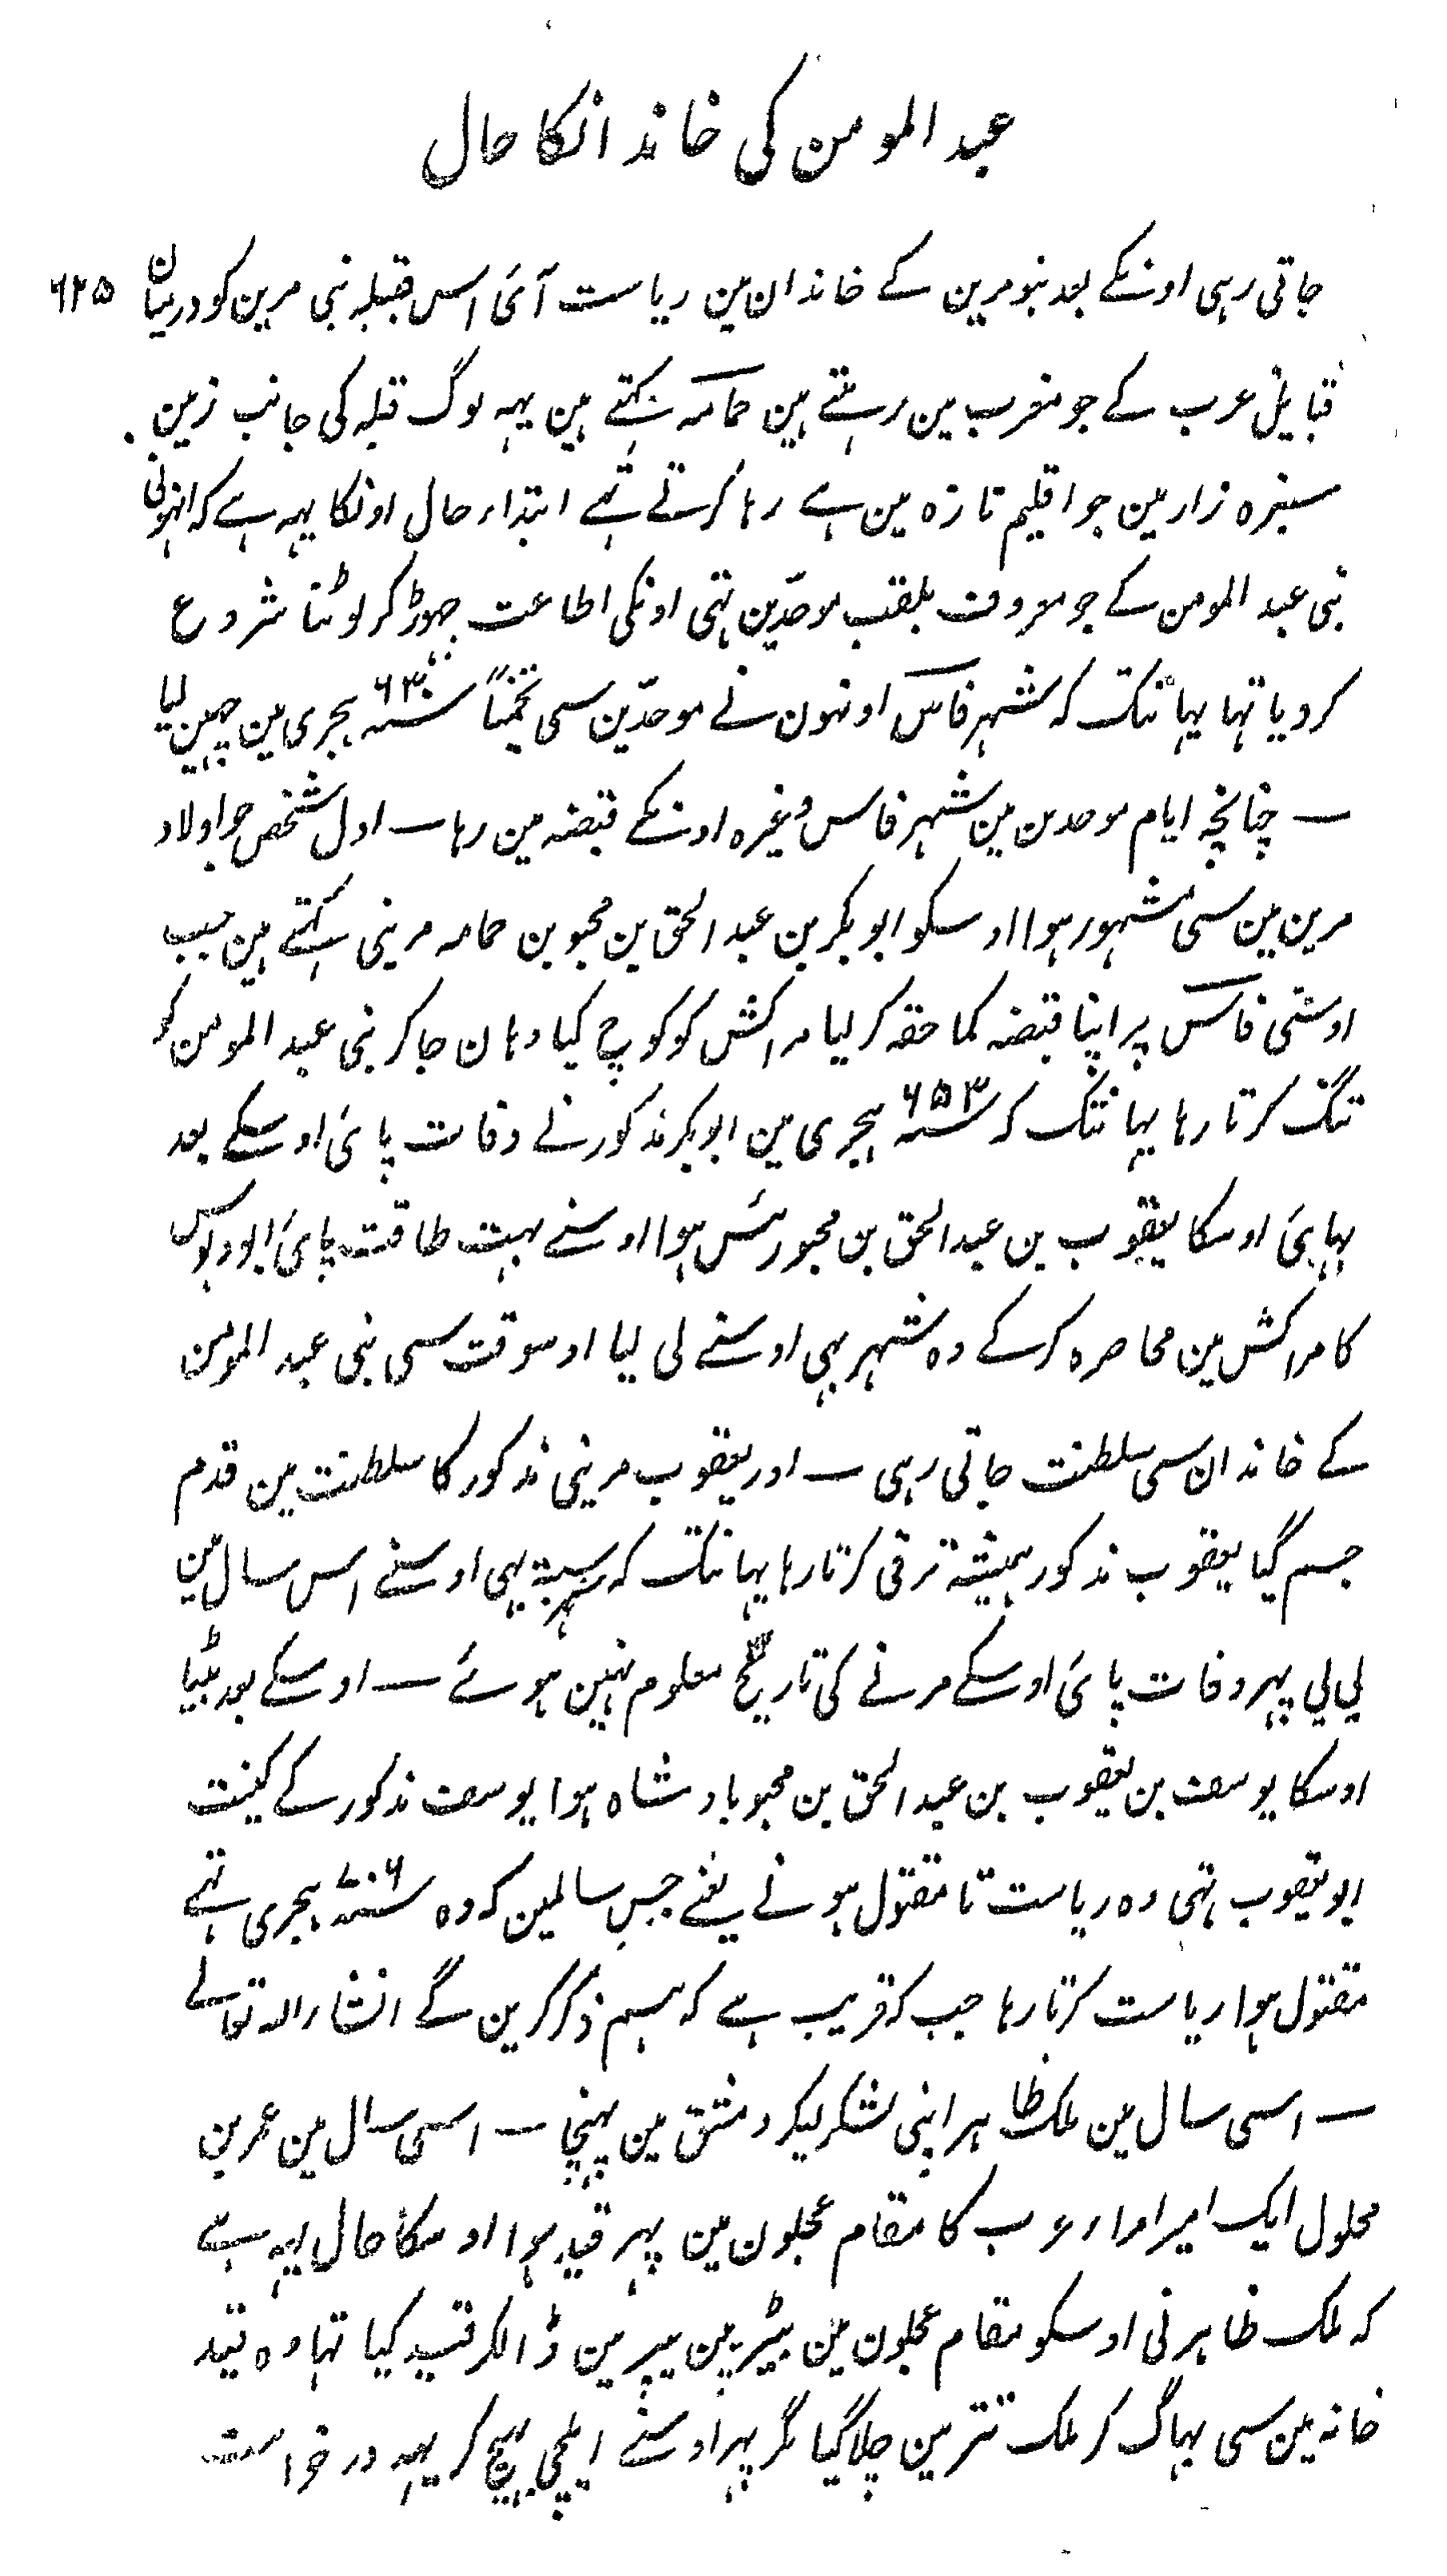 عبد المومن کی خاندانکا حال
جاتی رہی اونکے بعد بنو مرین کے خاندان مین ریاست آئی اس قبیلہ نبی مرین کو درمیان ۶۲۵
قبایل عرب کے جو مغرب مین رہتے ہین حمامہ کہتے ہین یہہ لوگ قبلہ کی جانب زمین
سبزہ زار مین جو اقلیم تازہ مین ہے رہا کرتے تہے ابتداء حال اونکا یہہ ہے کہ انہونی
نبی عبد المومن کے جو معروف بلقب موحدّین تہی اونکی اطاعت چہوڑ کر لوٹنا شروع
کر دیا تہا یہانتک کہ شہر فاس اونہون نے موحدّین سی تخمیناً سنہ ۶۳۰ ہجری مین چہین لیا
— چنانچہ ایام موحدین مین شہر فاس وغیرہ اونکے قبضہ مین رہا — اول شخص جو اولاد
مرین مین سی مشہور ہوا اوسکو ابو بکر بن عبد الحق بن محبو بن حمامہ مرینی کہتے ہین جب
اوسنی فاس پر اپنا قبضہ کما حقہ کر لیا مراکش کو کوچ کیا وہان جا کر نبی عبد المومن کو
تنگ کرتا رہا یہانتک کہ سنہ ۶۵۳ ہجری مین ابو بکر مذکور نے وفات پائی اوسکے بعد
بہائی اوسکا یعقوب بن عبد الحق بن محبو رئس ہوا اوسنے بہت طاقت پائی ابو دبوس
کا مراکش مین محاصرہ کر کے وہ شہر بہی اوسنے لی لیا اوسوقت سی بنی عبد المومن
کے خاندان سی سلطنت جاتی رہی — اور یعقوب مرینی مذکور کا سلطنت مین قدم
جم گیا یعقوب مذکور ہمیشہ ترقی کرتا رہا یہانتک کہ شہر سبتہ بہی اوسنے اس سال مین
لی لی پہر وفات پائی اوسکے مرنے کی تاریخ معلوم نہین ہوئے — اوسکے بعد بیٹیا
اوسکا یوسف بن یعقوب بن عبد الحق بن محبو بادشاہ ہوا یوسف مذکور کے کنیت
ابو یعقوب تہی وہ ریاست تا مقتول ہونے یعنے جس سالمین کہ وہ سنہ ۷۰۶ ہجری تہے
مقتول ہوا ریاست کرتا رہا جب کہ قریب ہے کہ ہم ذکر کرین گے انشاء اللہ تعالے
— اسی سال مین ملک ظاہر اپنی لشکر لیکر دمشق مین پہنچا — اسی سال مین عمر بن
محلول ایک امیر امراء عرب کا مقام عجلون مین پہر قید ہوا اوسکا حال یہہ ہے
کہ ملک ظاہر نی اوسکو مقام عجلون مین بیڑیین پیر مین ڈالکر قید کیا تہا وہ قید
خانہ مین سی بہاگ کر ملک تتر مین چلا گیا مگر پہر اوسنے ایلچی بہیج کر یہہ درخواست